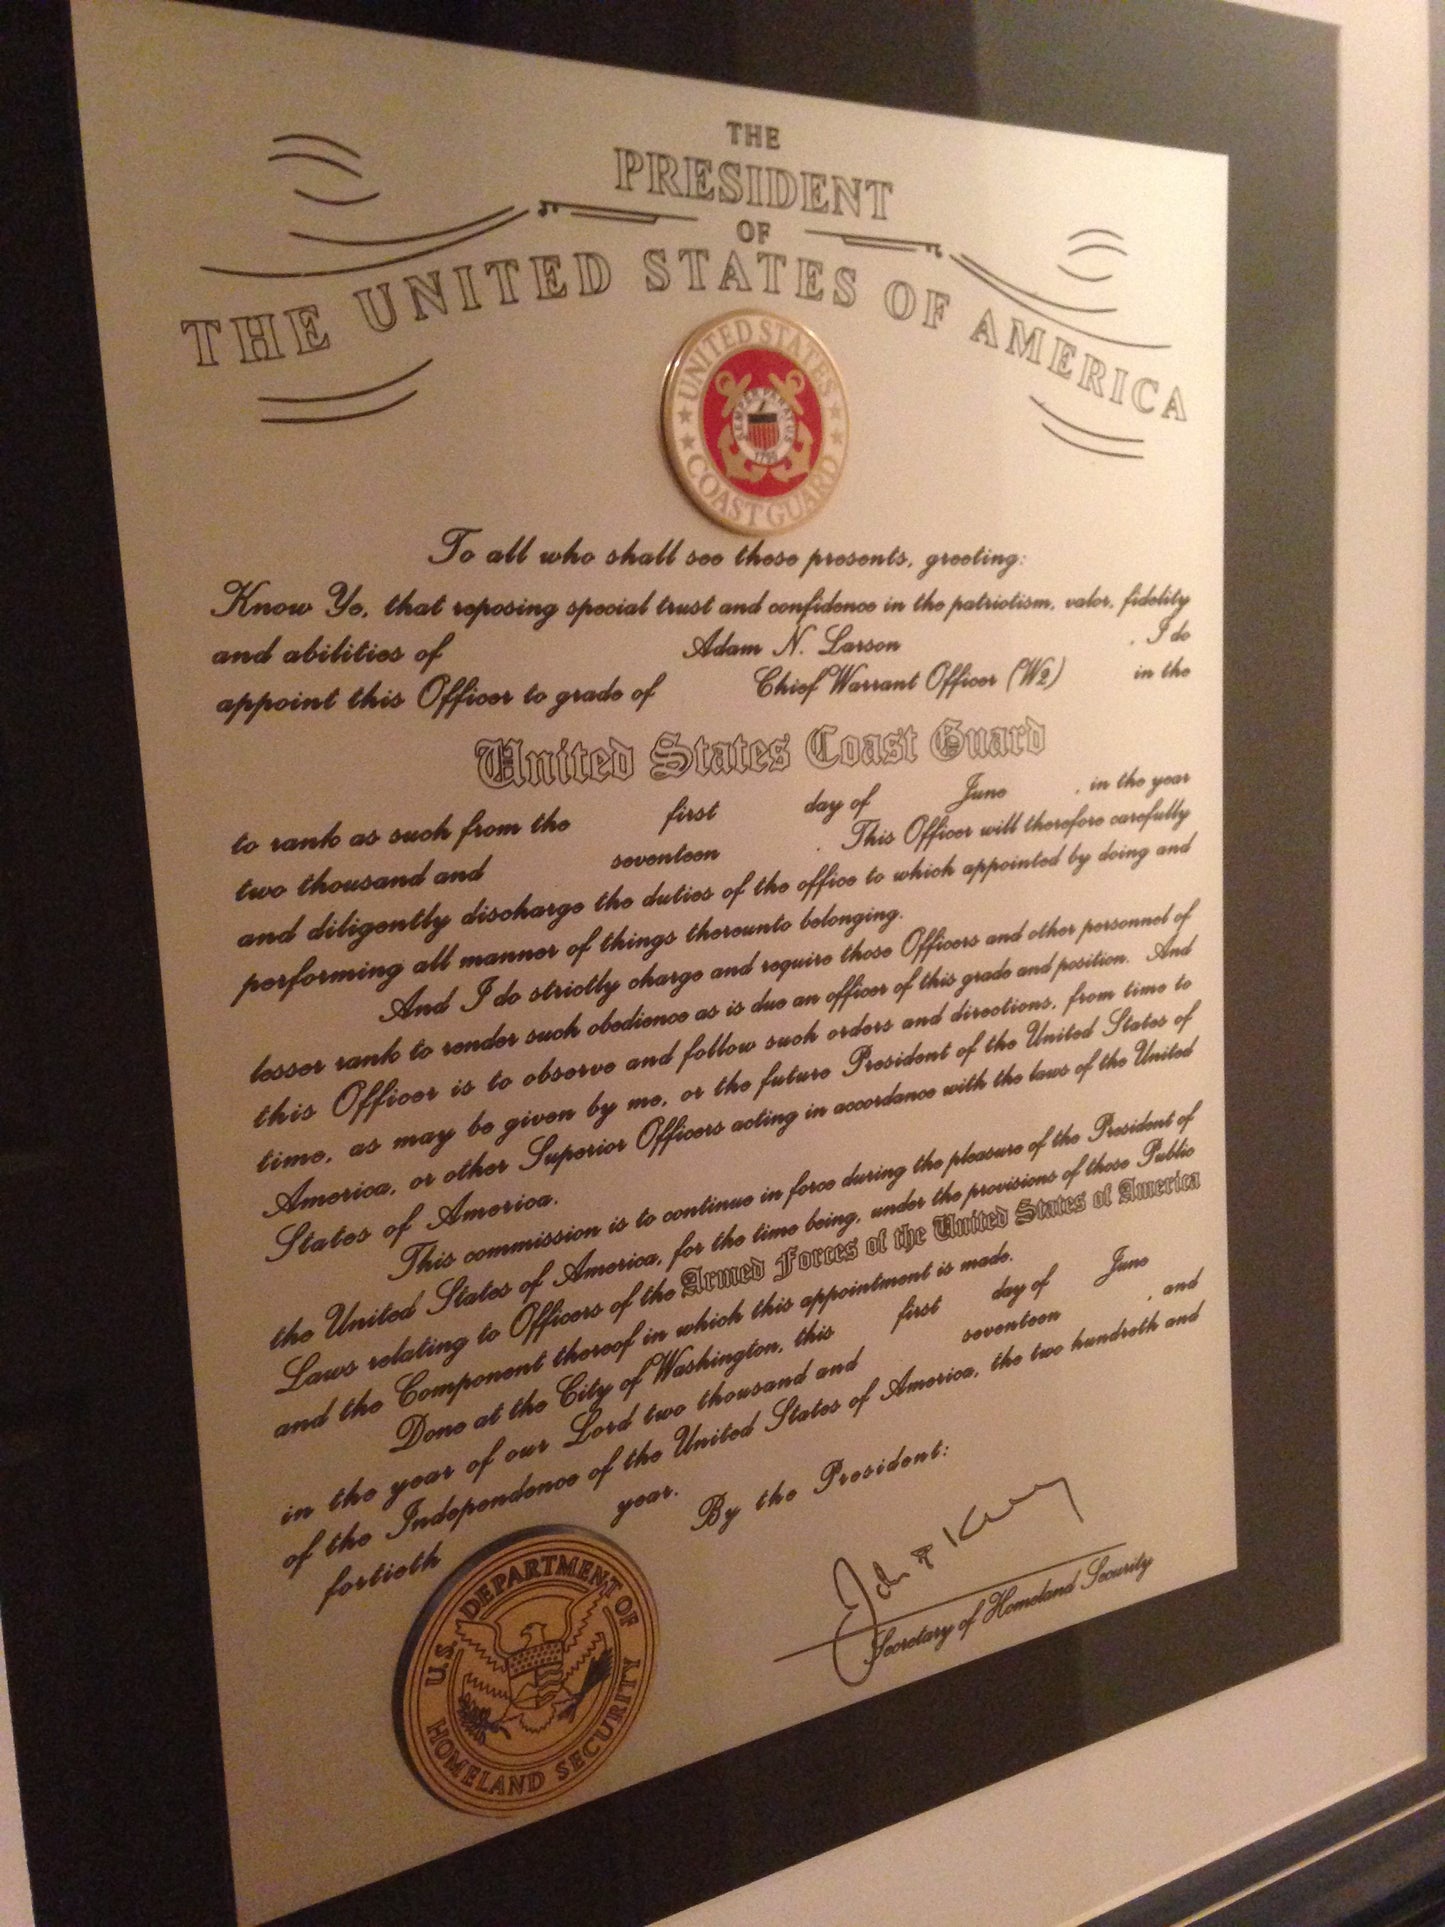 THE
PRESIDENT
OF
THE UNITED STATES OF AMERICA
UNITED STATES
SEMPER PARATUS
1790
COAST GUARD
To all who shall see these presents, greeting:
Know Ye, that reposing special trust and confidence in the patriotism, valor, fidelity
and abilities of Adam N. Larson , I do
appoint this Officer to grade of Chief Warrant Officer (W2) in the
United States Coast Guard
to rank as such from the first day of June , in the year
two thousand and seventeen . This Officer will therefore carefully
and diligently discharge the duties of the office to which appointed by doing and
performing all manner of things thereunto belonging.
And I do strictly charge and require those Officers and other personnel of
lesser rank to render such obedience as is due an officer of this grade and position. And
this Officer is to observe and follow such orders and directions, from time to
time, as may be given by me, or the future President of the United States of
America, or other Superior Officers acting in accordance with the laws of the United
States of America.
This commission is to continue in force during the pleasure of the President of
the United States of America, for the time being, under the provisions of those Public
Laws relating to Officers of the Armed Forces of the United States of America
and the Component thereof in which this appointment is made.
Done at the City of Washington, this first day of June , and
in the year of our Lord two thousand and seventeen
of the Independence of the United States of America, the two hundreth and
fortieth year.
By the President:
John F Kelly
Secretary of Homeland Security
U.S. DEPARTMENT OF
HOMELAND SECURITY